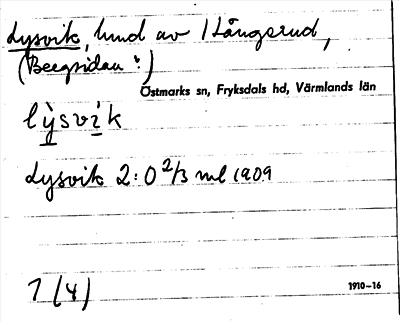 Lysvik, hmd av 1 Långerud,
(Bergsidan)
Östmarks sn, Fryksdals hd, Värmlands län
lỳsvìk
Lysvik 2:0 2/3 ml 1909
1 (4)
1910-16